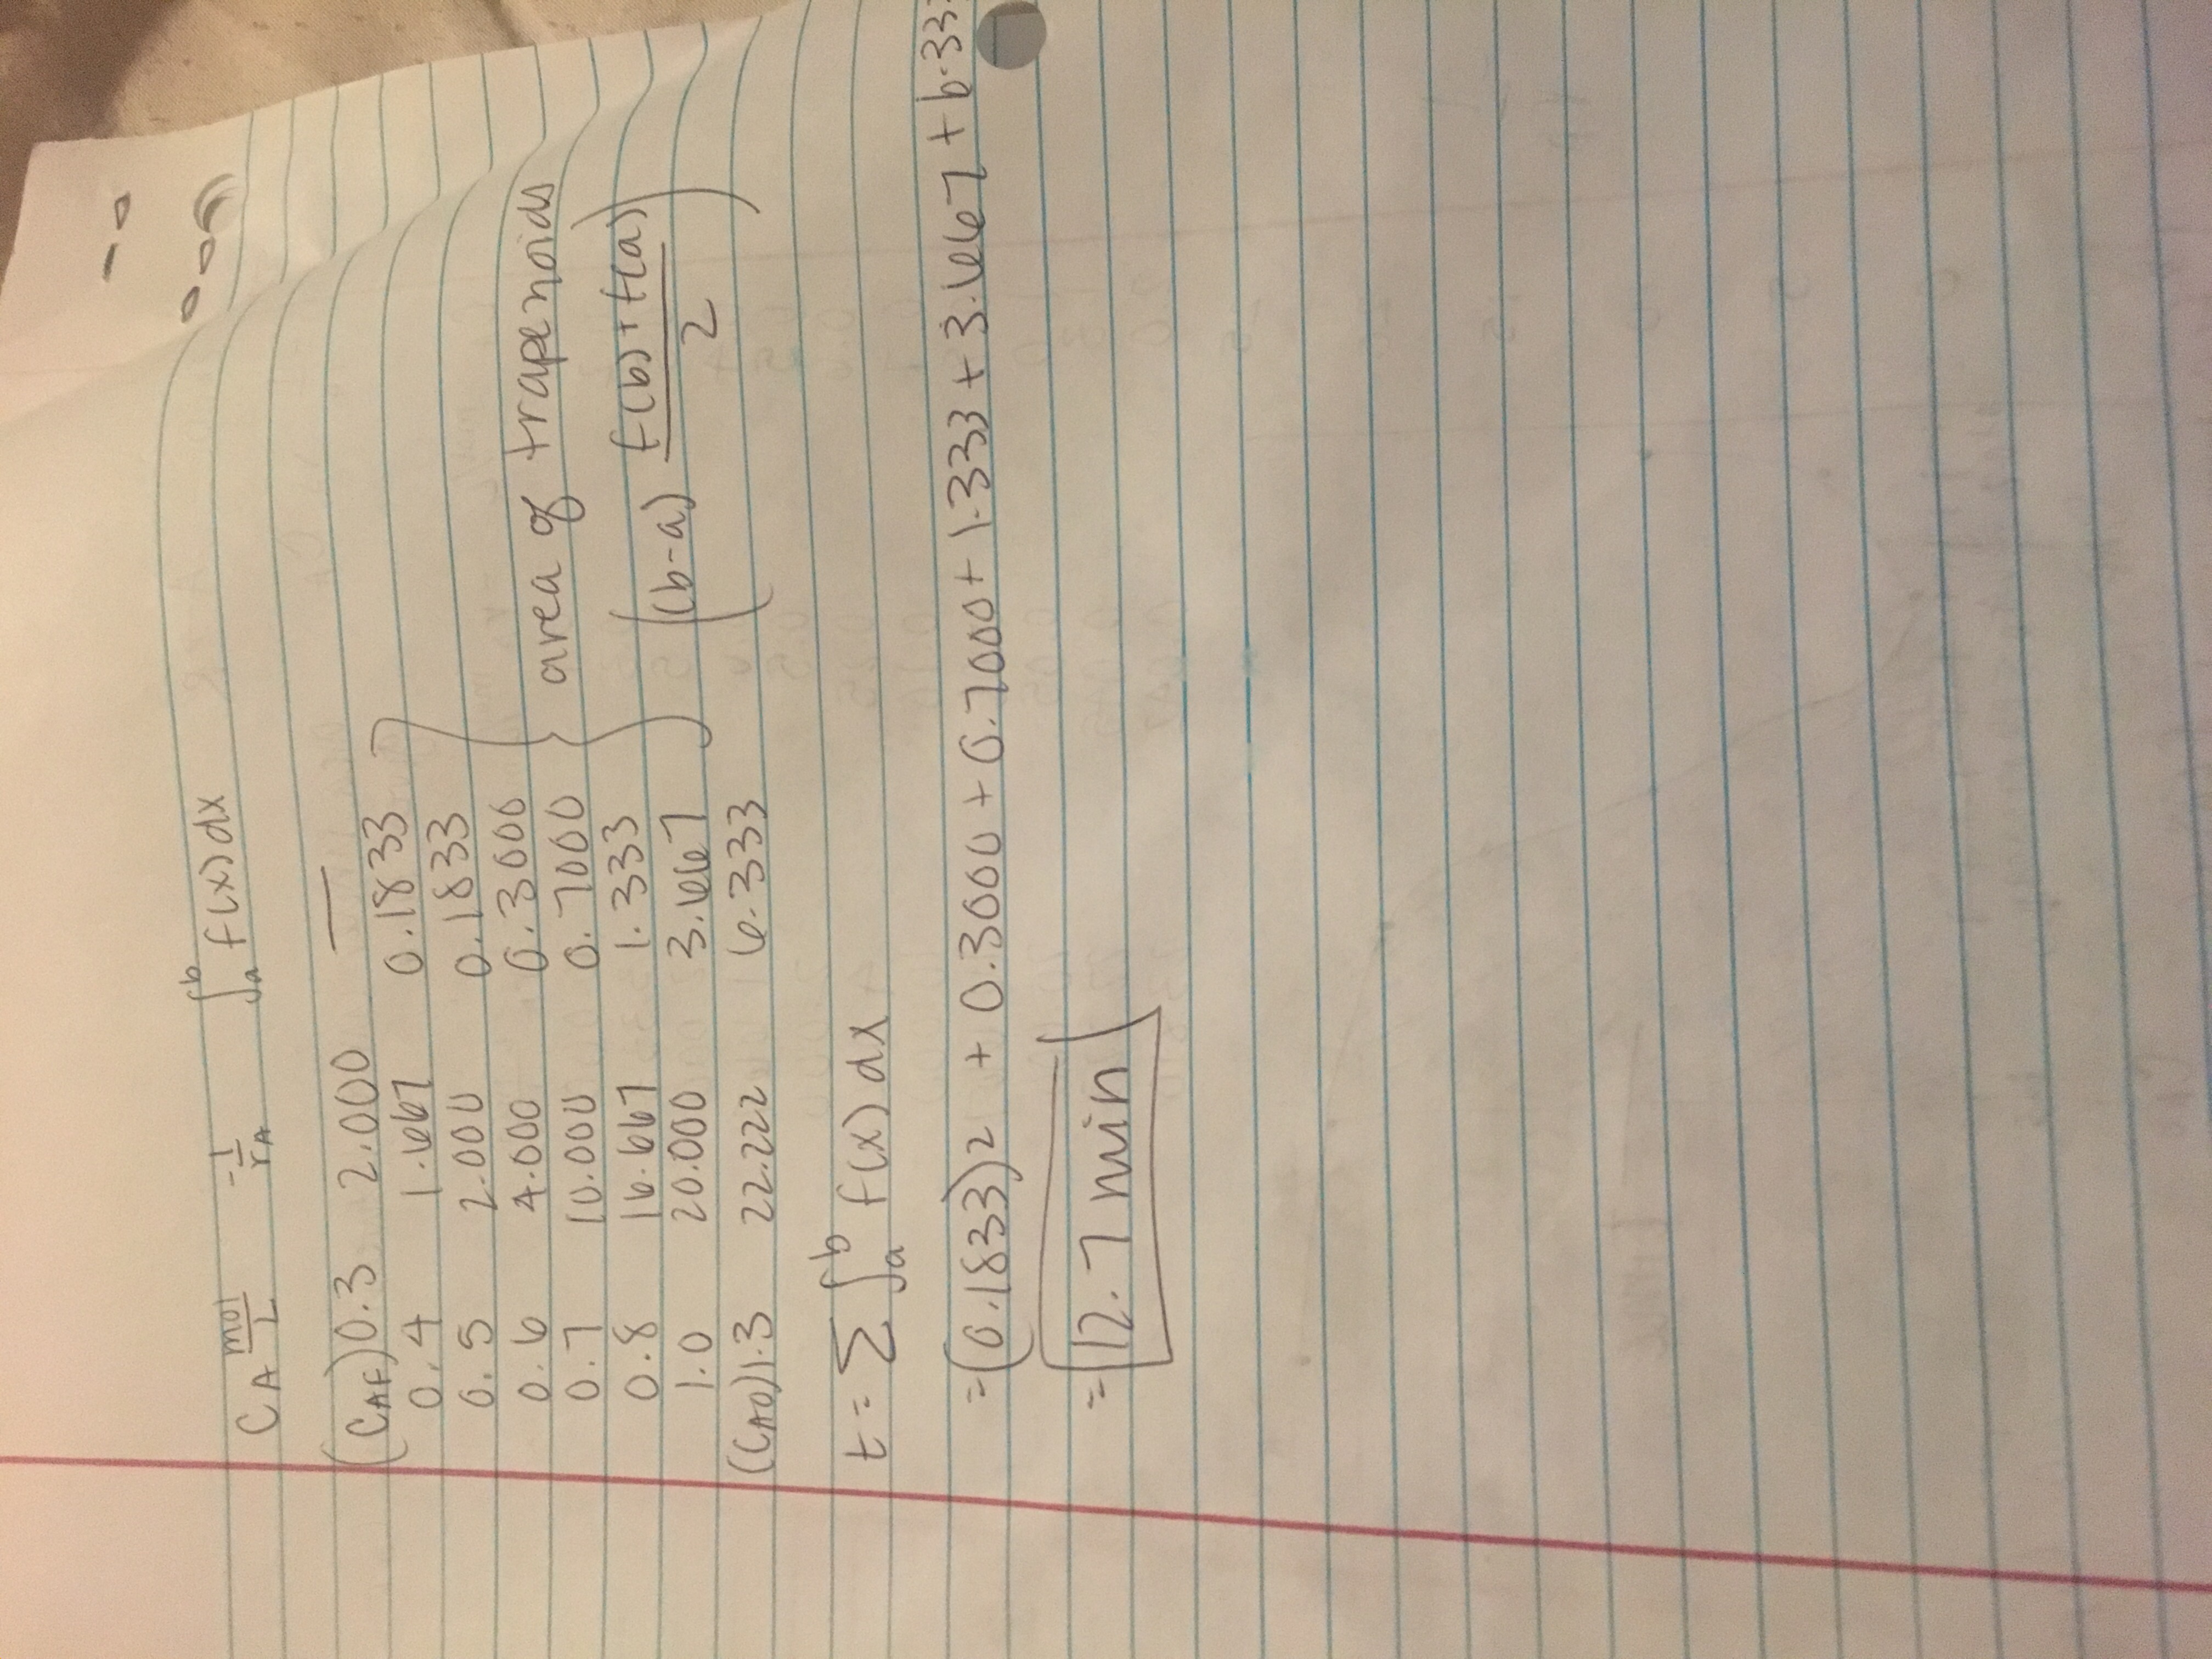 C_A mol/L -1/r_A ∫_a^b f(x) dx
(C_AF) 0.3 2.000 —
0.4 1.667 0.1833
0.5 2.000 0.1833
0.6 4.000 0.3000
0.7 10.000 0.7000
0.8 16.667 1.333
1.0 20.000 3.667
(C_AO) 1.3 22.222 6.333
area of trapenoids
((b-a) (f(b)+f(a))/2)
t = Σ ∫_a^b f(x) dx
= (0.1833)2 + 0.3000 + 0.7000 + 1.333 + 3.667 + 6.33
= 12.7 min